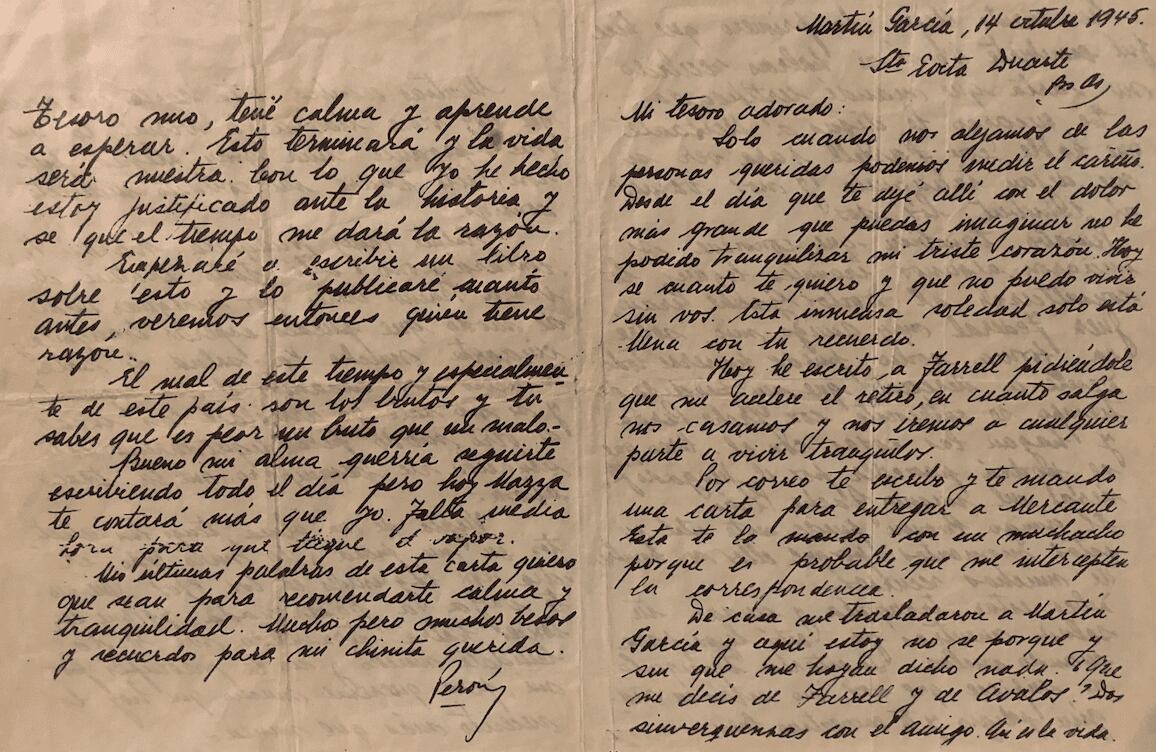 Martín García, 14 octubre 1945.
Sta Evita Duarte
Bs As,
Mi tesoro adorado:
Solo cuando nos alejamos de las
personas queridas podemos medir el cariño.
Desde el día que te dejé allí con el dolor
más grande que puedas imaginar no he
podido tranquilizar mi triste corazón. Hoy
se cuanto te quiero y que no puedo vivir
sin vos. Esta inmensa soledad solo está
llena con tu recuerdo.
Hoy he escrito a Farrell pidiéndole
que me acelere el retiro, en cuanto salga
nos casamos y nos iremos a cualquier
parte a vivir tranquilos.
Por correo te escribo y te mando
una carta para entregar a Mercante
Esta te la mando con un muchacho
porque es probable que me intercepten
la correspondencia.
De casa me trasladaron a Martín
García y aquí estoy no se porque y
sin que me hayan dicho nada. ¿Que
me decis de Farrell y de Avalos? Dos
sinverguenzas con el amigo. Así es la vida.
Tesoro mio, tené calma y aprende
a esperar. Esto terminará y la vida
será nuestra. Con lo que yo he hecho
estoy justificado ante la historia y
se que el tiempo me dará la razón.
Empezaré a escribir un libro
sobre esto y lo publicaré cuanto
antes, veremos entonces quién tiene
razón.
El mal de este tiempo y especialmen-
te de este país son los brutos y tu
sabes que es peor un bruto que un malo.-
Bueno mi alma querría seguirte
escribiendo todo el día pero hoy Mazza
te contará más que yo. Falta media
hora para que llegue el vapor.
Mis últimas palabras de esta carta quiero
que sean para recomendarte calma y
tranquilidad. Mucho pero muchos besos
y recuerdos para mi chinita querida.
Perón